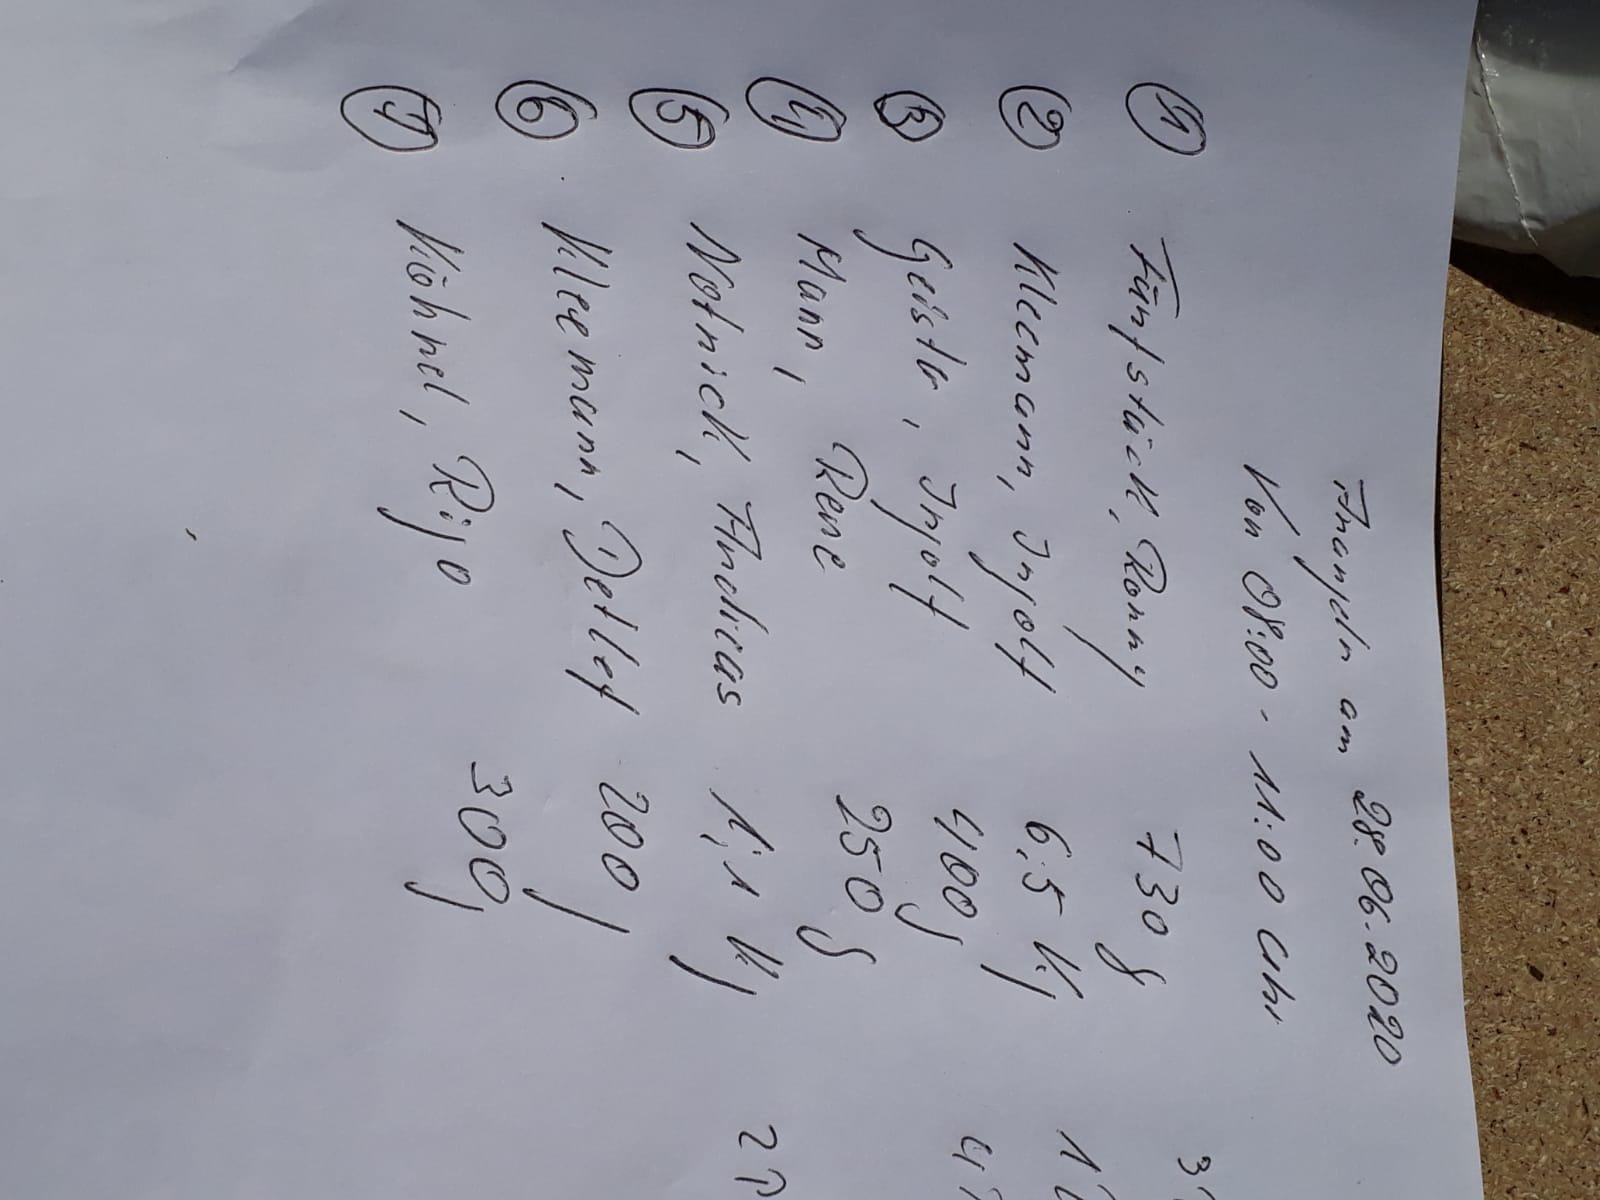 Anangeln am 28.06.2020
Von 08:00 - 11:00 Uhr
1 Fünfstück, Ronny 730 g 3
2 Kleemann, Ingolf 6,5 kg 1
3 Geisler, Ingolf 400g 4
4 Mann, Rene 250g
5 Notnick, Andreas 1,1 kg 2P
6 Kleemann, Detlef 200g
7 Köhnel, Rijo 300g